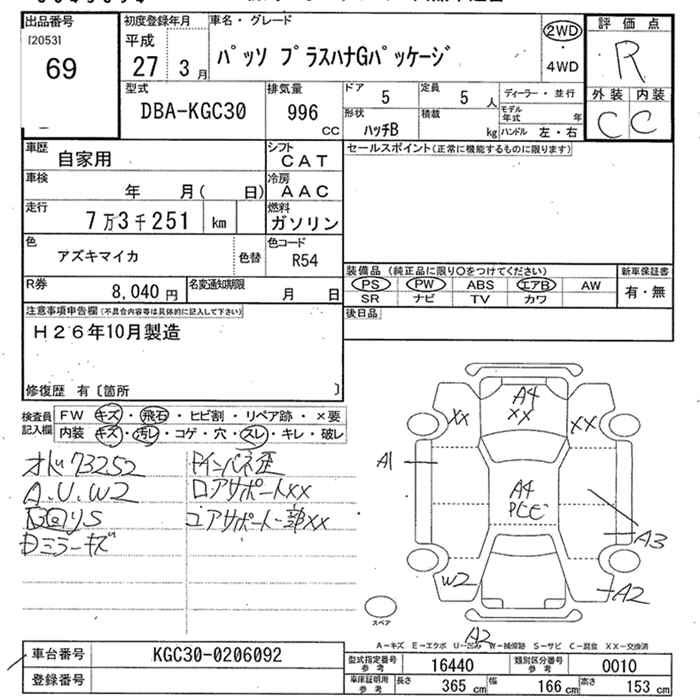 出品番号
[2053]
69
初度登録年月
平成
27 3月
車名・グレード
パッソ プラスハナGパッケージ
2WD
・
4WD
評価点
R
外装 内装
C C
型式
DBA-KGC30
排気量
996
CC
ドア
5
定員
5 人
形状
ハッチB
積載
kg
ディーラー・並行
モデル年式 年
ハンドル 左・右
車歴
自家用
シフト
CAT
セールスポイント(正常に機能するものに限ります)
車検
年 月( 日)
冷房
AAC
走行
7万3千251 km
燃料
ガソリン
色
アズキマイカ
色替
色コード
R54
装備品(純正品に限り〇をつけてください)
新車保証書
PS PW ABS エアB AW
有・無
SR ナビ TV カワ
R券
8,040 円
名変通知期限
月 日
後日品
注意事項申告欄(不具合内容等は具体的に記入して下さい)
H26年10月製造
修復歴 有〔箇所 〕
検査員記入欄
FW キズ・飛石・ヒビ割・リペア跡・×要
内装 キズ・汚レ・コゲ・穴・スレ・キレ・破レ
オドΓ73252
A.U.W2
Dミラーキズ
インパネ歪
ロアサポートXX
コアサポート一部XX
A4
XX
XX
XX
A1
A4
PCC
A3
W2
A2
A2
スペア
A-キズ E-エクボ U-凹み W-補修跡 S-サビ C-腐食 XX-交換済
車台番号
KGC30-0206092
登録番号
型式指定番号参考
16440
類別区分番号参考
0010
車庫証明用参考
長さ 365 cm
幅 166 cm
高さ 153 cm